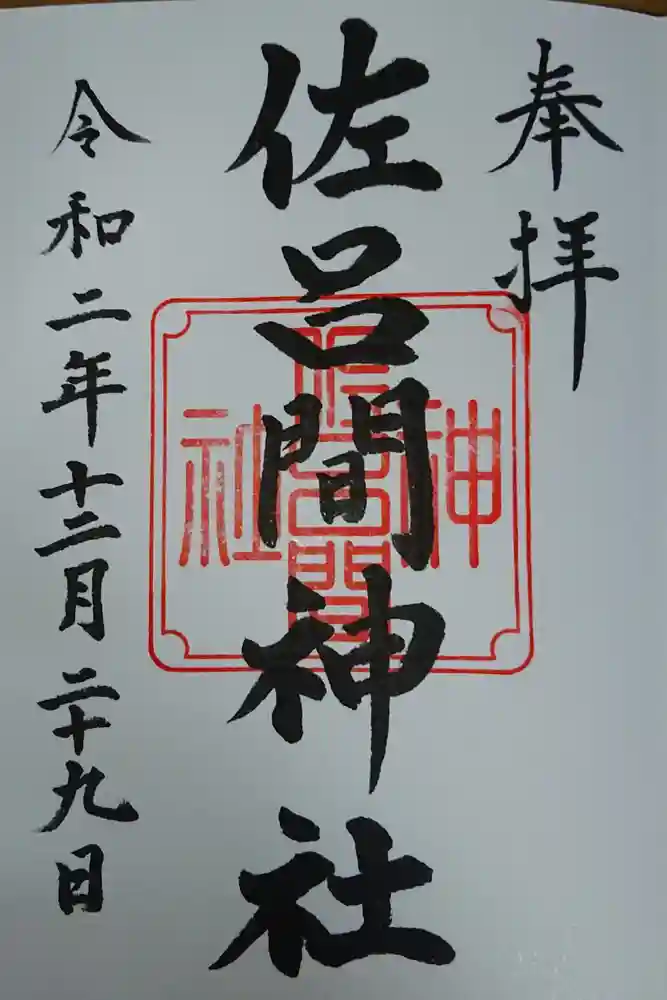 奉拝
佐呂間神社
神
佐呂間
社
令和二年十二月二十九日